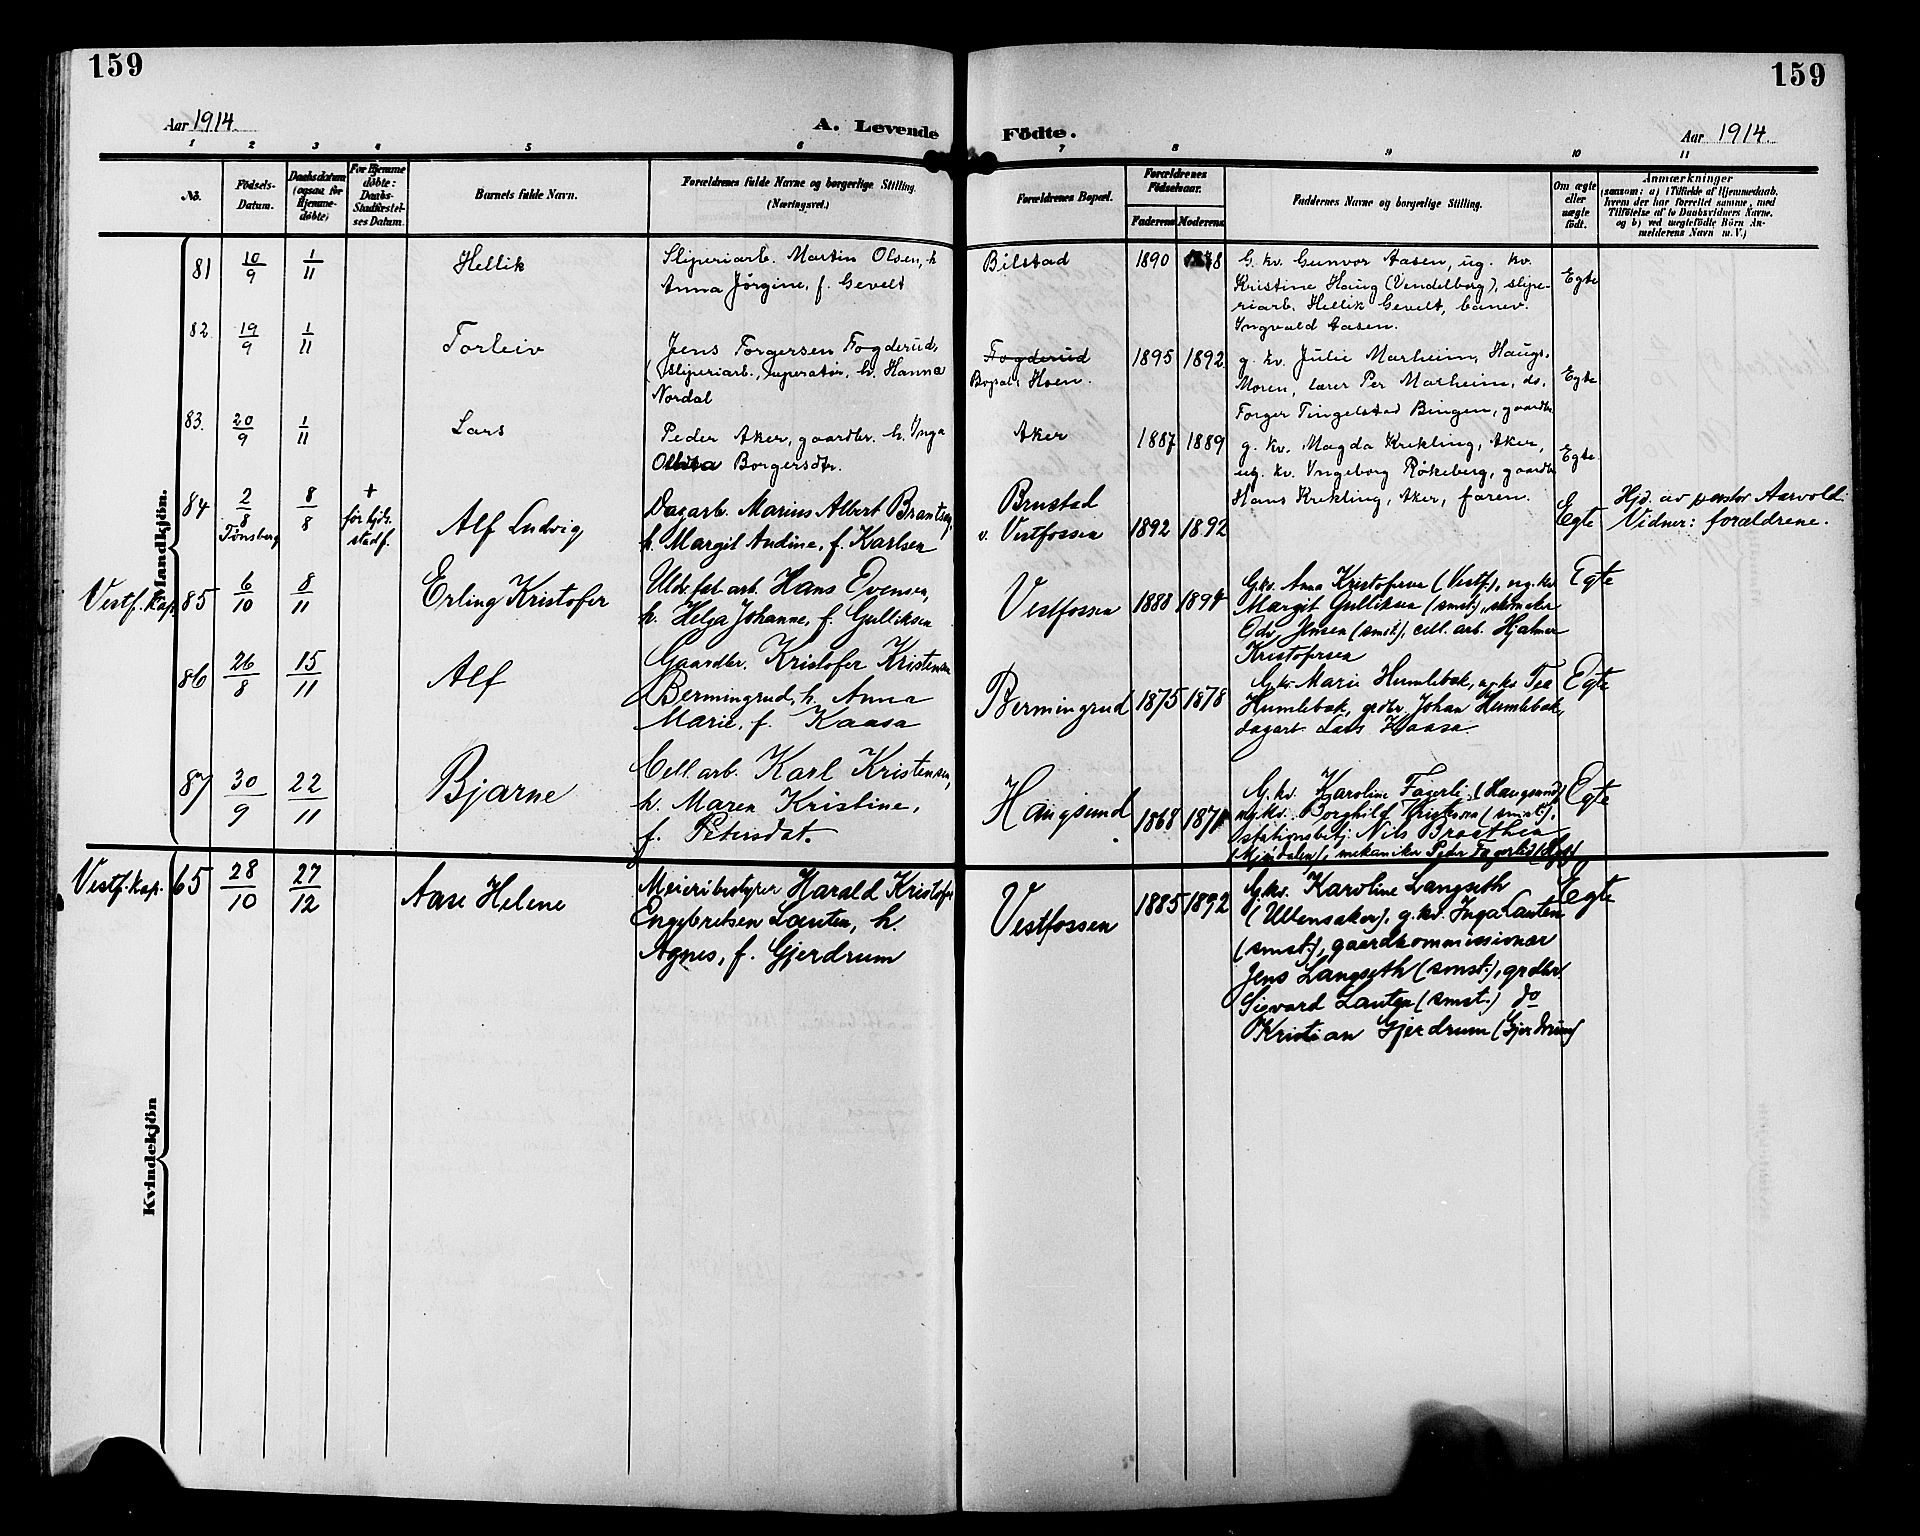 159
159
Aar 1914.
A. Levende
Födte.
Aar 1914.
1 2 3 4 5 6 7 8 9 10 11
No.
Födsels-
Datum.
Daabsdatum
(ogsaa for
Hjemme-
döbte)
For Hjemme
döbte:
Daabs-
Stadfæstel-
ses Datum.
Barnets fulde Navn.
Forældrenes fulde Navne og borgerlige Stilling.
(Næringsvei.)
Forældrenes Bopæl.
Forældrenes
Födselsaar.
Faderens
Moderens
Faddernes Navne og borgerlige Stilling.
Om ægte
eller
uægte
födt.
Anmærkninger
(saasom: a) i Tilfælde af Hjemmedaab,
hvem der har forrettet samme, med
Tilföielse af to Daabsvidners Navne.
og b) ved uægtefödte Börn An-
melderens Navn m. V.)
Mandkjön.
81 10/9 1/11 Hellik
Sliperiarb. Martin Olsen, h
Anna Jørgine, f. Gevelt
Bilstad 1890
G. kv. Gunvor Aasen, ug. kv.
Kristine Haug (Vendelborg), slipe-
riarb. Hellik Gevelt, banev.
Yngvald Aasen.
Egte
82. 19/9 1/11 Torleiv
Jens Torgersen Fogderud,
(sliperiarb., reperatør, h. Hanna
Nordal
Fogderud
Bopæl: Hoen.
1895 1892.
g. kv. Julie Marheim, Haugs-
Moren, lærer Per Marheim, ds.
Torger Tingelstad Bingen, gaardbr.
Egte
83. 20/9 1/11 Lars
Peder Aker, gaardbr. h. Ynga
Borgersdtr.
Aker 1887 1889
g. kv. Magda Krekling, Aker,
ug. kv. Yngeborg Røkeberg, gaardbr
Hans Krekling, Aker, faren.
Egte.
84 2/8 Tønsberg 8/8
+
før hjds.
stadf.
Alf Ludvig
Dagarb. Marius Albert
h. Margit Andine, f. Karlsen
Brustad
v. Vestfossen
1892 1892
Egte
Hjd. av pastor Aarvold.
Vidner: forældrene.
Vestf. kap. 85 6/10 8/11 Erling Kristofer
Uldv. fab. arb. Hans Evensen,
h. Helga Johanne, f. Gulliksen
Vestfossen 1888 1894
G.kv. Anna Kristofersen (Vestf.), ug. kv.
Margit Gulliksen (smst.), skomaker
Odv. Jensen (smst.), cell. arb. Hjalmer
Kristofersen
Egte
86 26/8 15/11 Alf
Gaardbr. Kristofer Kristensen
Bermingrud, h. Anna
Marie, f. Kaasa
Bermingrud 1875 1878
G.kv. Marie Humlebæk, ug. kv. Tea
Humlebæk, grdbr. Johan Humlebæk,
dagarb. Lars Kaasa.
Egte
87 30/9 22/11 Bjarne
Cell. arb. Karl Kristensen,
h. Maren Kristine,
f. Petersdat.
Haugsund 1868 1871
G. kv. Karoline Fagerli (Haugsund)
ug.kv. Borghild Kristensen (smst.),
stationsbetj. Nils Braathen
(Mjøndalen), mekaniker Peter Fagerli
Egte
Kvindekjön
Vestf. kap. 65 28/10 27/12 Aase Helene
Meieribestyrer Harald Kristofer
Engebretsen Lauten, h.
Agnes, f. Gjerdrum
Vestfossen 1885 1892
G. kv. Karoline Langseth
(Ullensaker), g. kv. Inga Lauten
(smst.), gaardkommissionær
Jens Langseth (smst.), grdbr.
Sigvard Lauten (smst.) do
Kristian Gjerdrum (Gjerdrum)
Egte